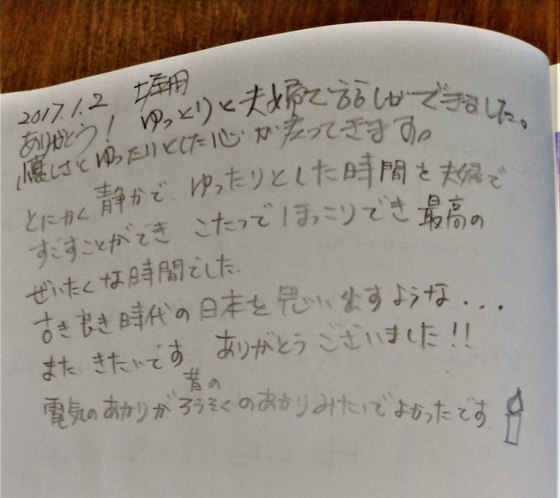 2017.1.2
ありがとう! ゆっとりと夫婦で話しができました。
優しさとゆったりとした心が戻ってきます。
とにかく静かで ゆったりとした時間を夫婦で
すごすことができ こたつでほっこりでき 最高の
ぜいたくな時間でした.
古き良き時代の日本を思い出すような...
また きたいです ありがとうございました!!
昔の
電気のあかりが ろうそくのあかりみたいでよかったです